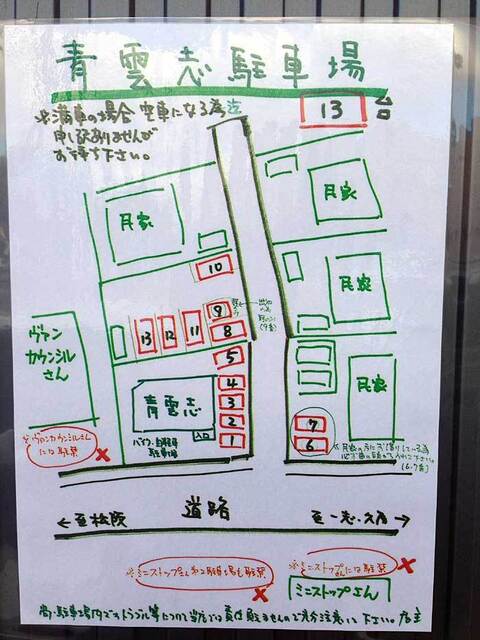 青雲志駐車場
13台
※満車の場合 空車になる為迄
申し訳ありませんが
お待ち下さい。
民家
民家
10
民家
9
13 12 11 8
ヴァン
カウンシル
さん
5
4
青雲志
3
民家
2
7
バイク・自転車
駐車場
入口
1
6
※ヴァンカウンシルさん
には駐禁
×
(6.7番)
道路
←至松阪
至一志・久居→
※ミニストップさん第2駐車場も駐禁
×
※ミニストップさんには駐禁
×
ミニストップさん
尚、駐車場内でのトラブル等については当店では責任駐ませんのでご充分注意して下さい。店主